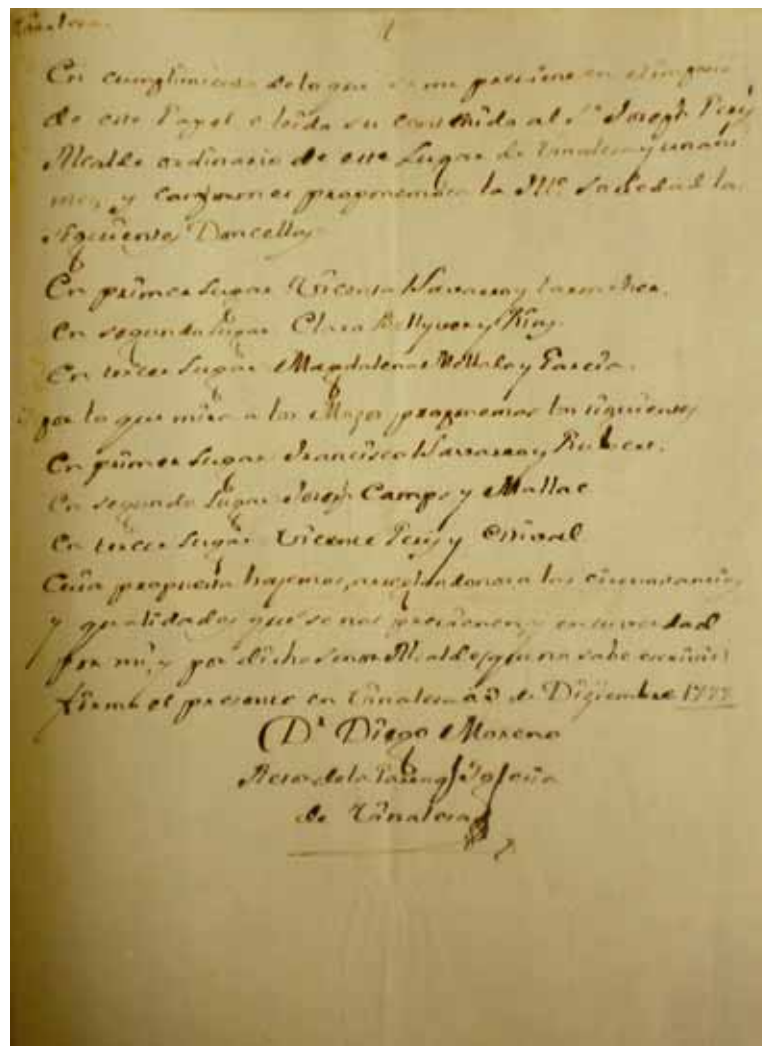 Vinalesa.
En cumplimiento de lo que se me previene en el
de este Papel e leido su contenido al Sr. Joseph Peris
Alcalde ordinario de este Lugar de Vinalesa y unani
mes, y conformes proponemos a la Ille. Sociedad las
siguientes Doncellas
En primer Lugar Vicenta Navarro y
En segundo Lugar Clara Bellver y Riny.
En tercer Lugar Magdalena y Garcia.
por lo que mira a los Mozos proponemos los siguientes
En primer Lugar Francisco Navarro y Rubert.
En segundo Lugar Joseph Camps y
En tercer Lugar Vicente Peris y
Cuia propuesta hazemos, arreglandonos a las circunstancias,
y qualidades que se nos previenen, y en su verdad
por mi, y por dicho señor Alcalde, que no sabe escrivir
firmo el presente en Vinalesa a de Diziembre 1777
Dr. Diego Moreno
Retor de la Parroql. Iglesia
de Vinalesa